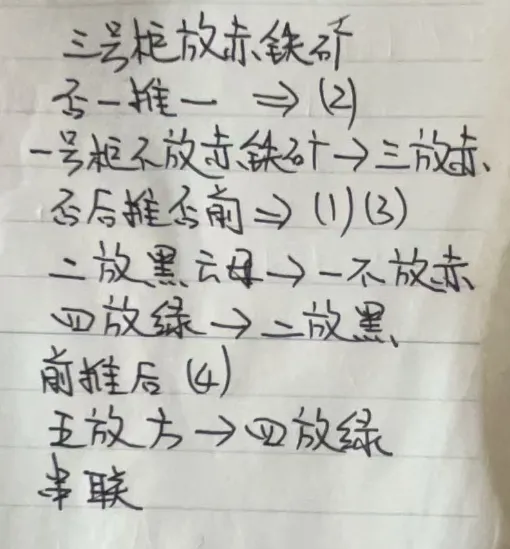 三号柜放赤铁矿
否一推一 ⇒ (2)
一号柜不放赤铁矿→三放赤
否后推否前⇒ (1)(3)
二放黑云母→一不放赤
四放绿→二放黑
前推后 (4)
五放方→四放绿
串联